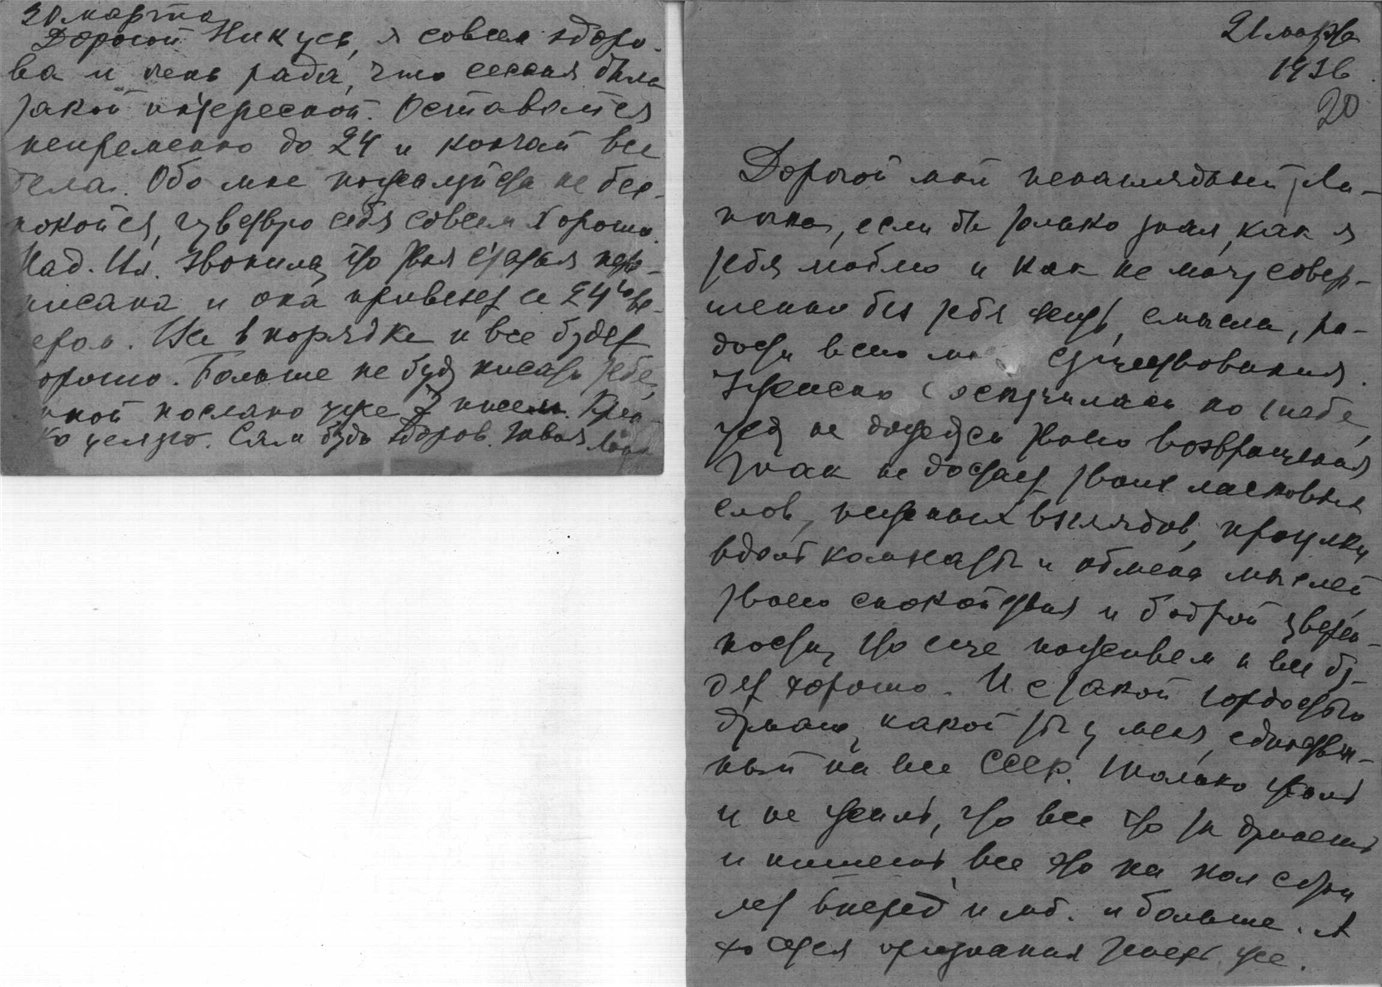 20 марта
Дорогой Никусь, я совсем здоро-
ва и очень рада, что сессия была
такой интересной. Оставайся
непременно до 24 и кончай все
дела. Обо мне пожалуйста не бес-
покойся, чувствую себя совсем хорошо.
Над. Ил. звонила, что твоя статья пере-
писана и она привезет ее 24го ве-
ером. Все в порядке и все будет
орошо. Больше не буду писать тебе,
мной послано уже 7 писем. Креп-
ко целую. Сам будь здоров. Твоя
21 марта
1936
20
Дорогой мой ненаглядный
если бы только знал, как я
тебя люблю и как не могу совер-
шенно без тебя жить, смысла, ра-
дости всего моего существования.
Ужасно соскучилась по тебе,
жду не дождусь твоего возвращения
Так не достает твоих ласковых
слов, нежных взглядов, прогулки
вдоль комнаты и обмена мыслей
твоего спокойствия и бодрой уверен-
ности, что еще поживем и все бу-
дет хорошо. И с такой гордостью
думаю, какой ты у меня, единствен-
ный на все СССР. Сколько
и не
и пишешь, все это на
лет вперед и м.б. и больше. А
хочется признания теперь уже.